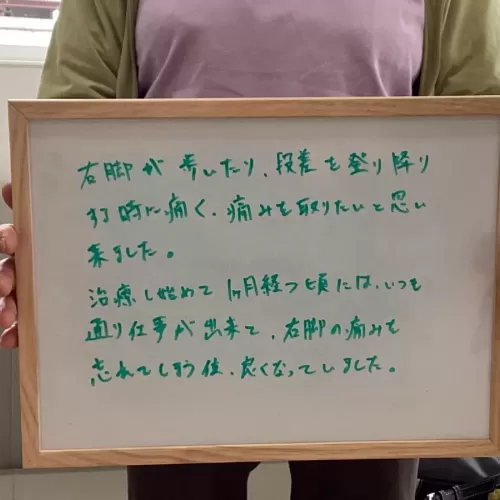 右脚が歩いたり、段差を登り降り
する時に痛く、痛みを取りたいと思い
来ました。
治療し始めて1ヶ月経つ頃には、いつも
通り仕事が出来て、右脚の痛みも
忘れてしまう位、良くなっていました。